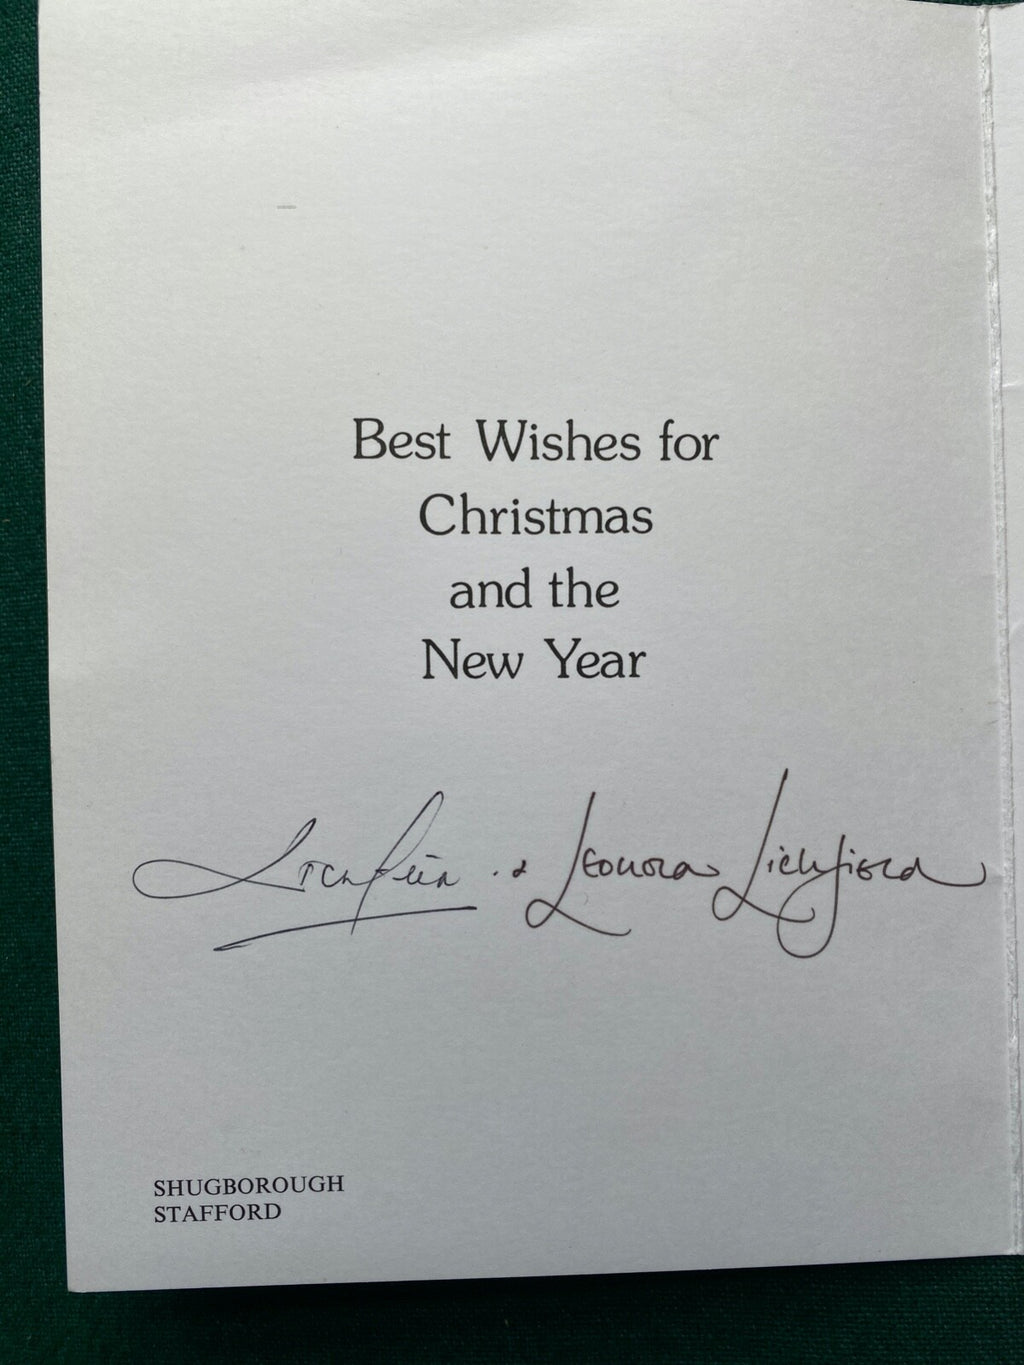 Best Wishes for
Christmas
and the
New Year
Lichfield & Leonora Lichfield
SHUGBOROUGH
STAFFORD